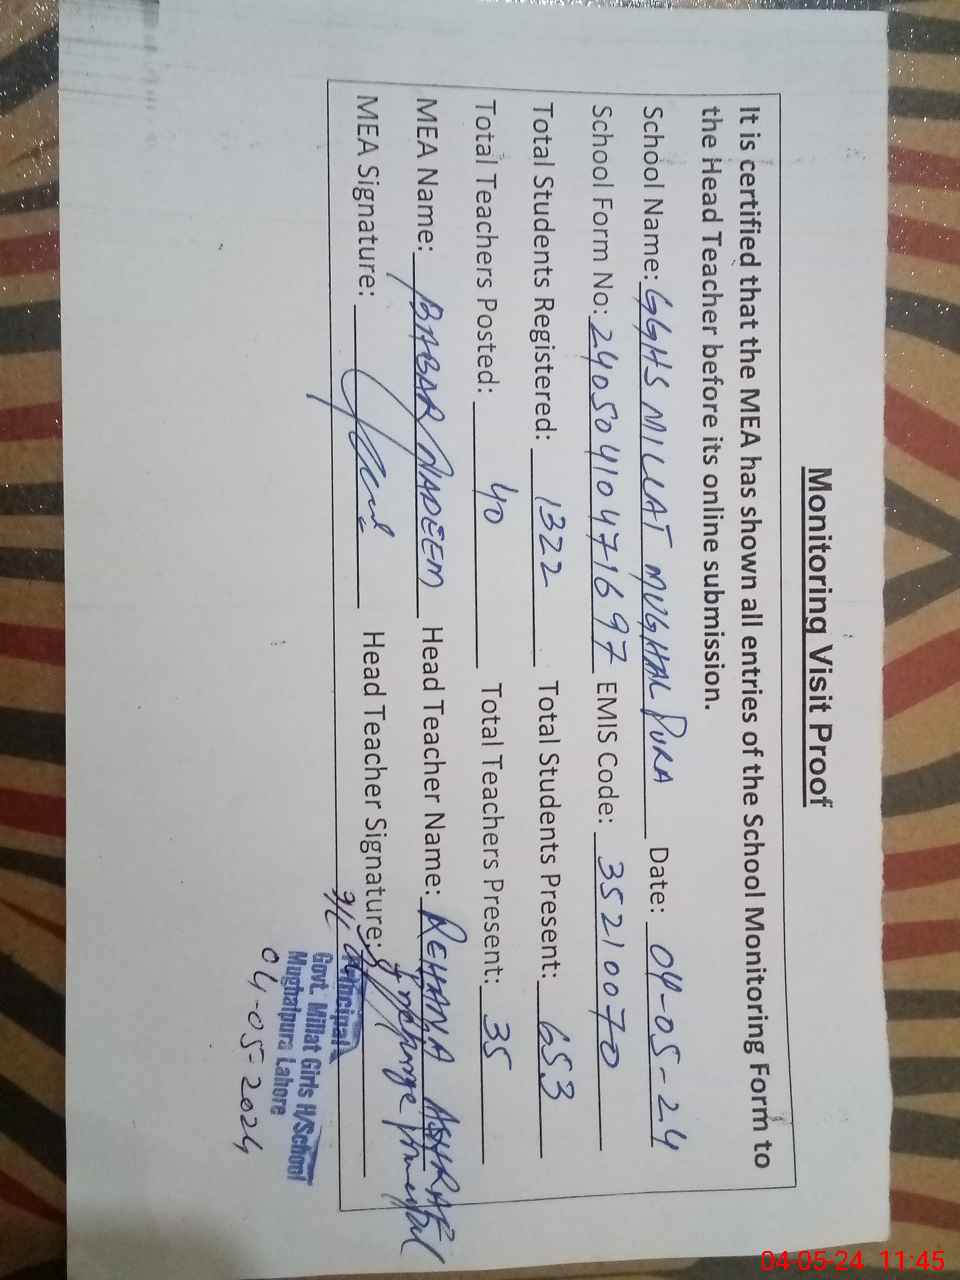 Monitoring Visit Proof
It is certified that the MEA has shown all entries of the School Monitoring Form to
the Head Teacher before its online submission.
School Name: GGHS MILLAT MUGHAL PURA Date: 04-05-24
School Form No: 24050410471697 EMIS Code: 35210070
Total Students Registered: 1322 Total Students Present: 653
Total Teachers Posted: 40 Total Teachers Present: 35
MEA Name: BABAR NADEEM Head Teacher Name: REHANA ASHRAF
Incharge Principal
MEA Signature: Head Teacher Signature:
I/C
Principal
Govt. Millat Girls H/School
Mughalpura Lahore
04-05-2024
04-05-24 11:45